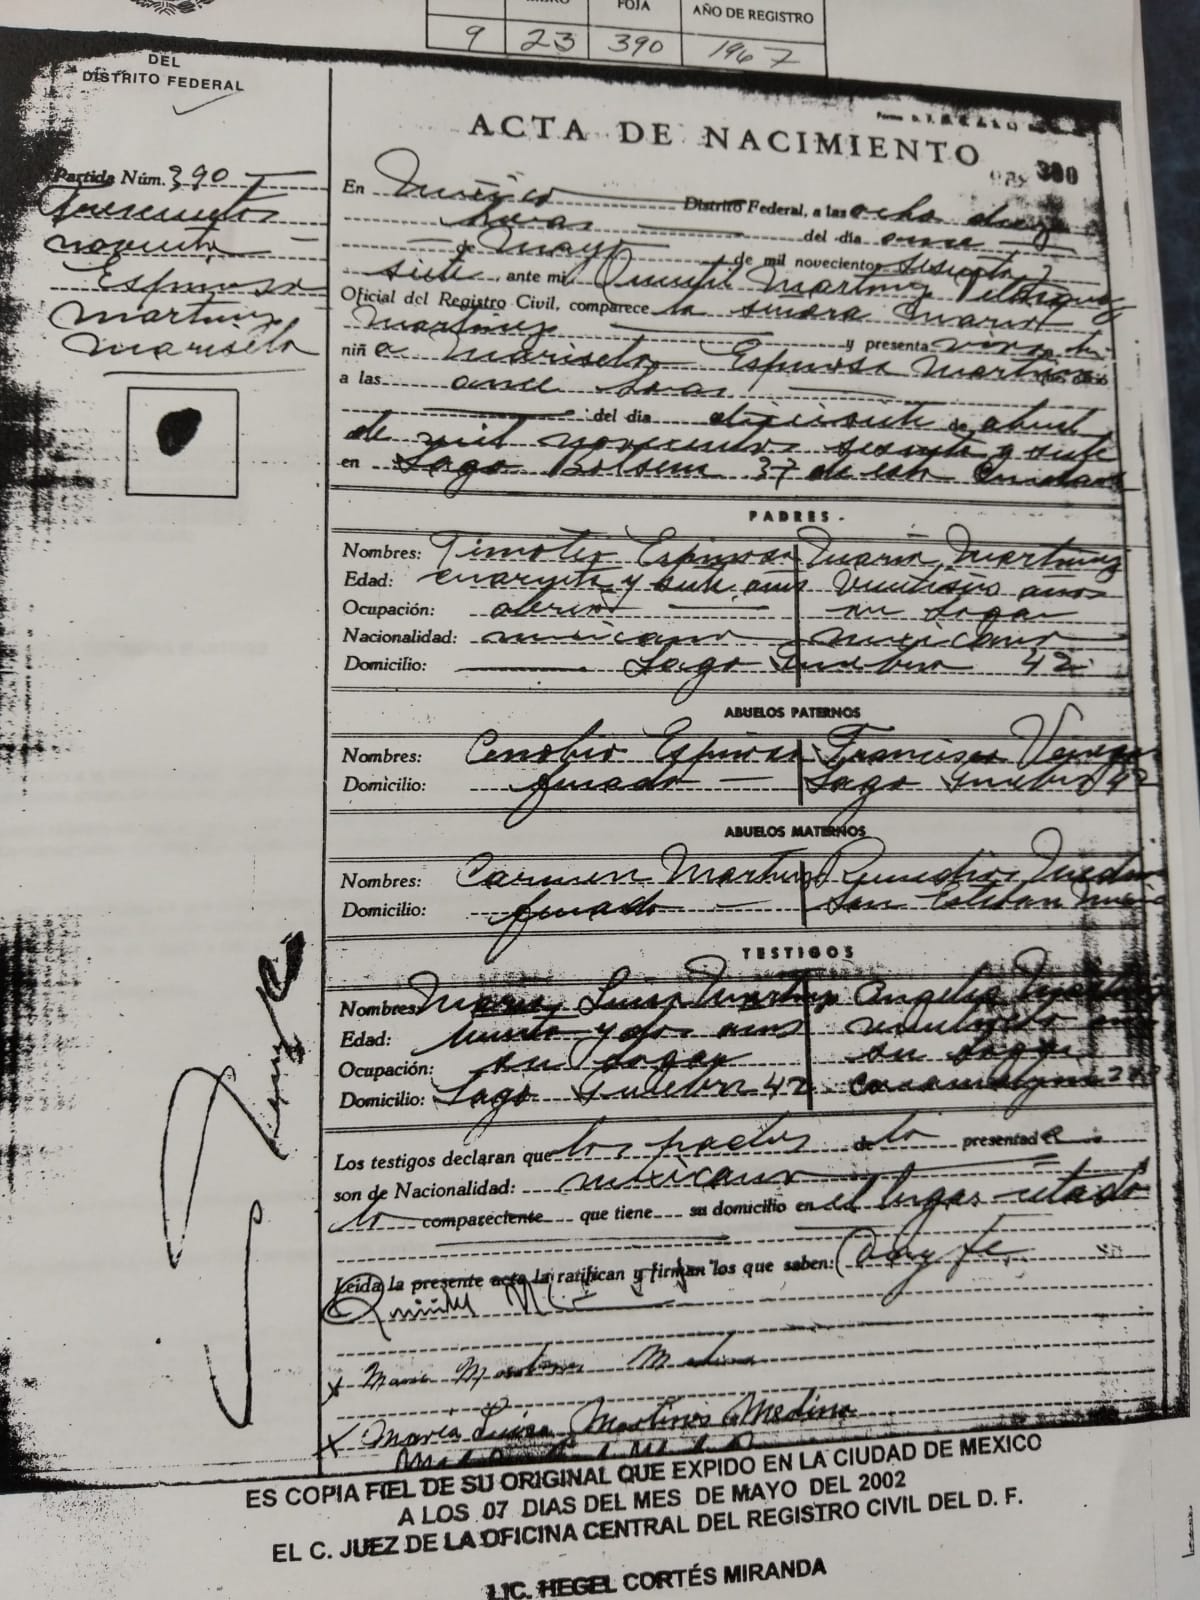 FOJA AÑO DE REGISTRO
9 23 390 1967
DEL
DISTRITO FEDERAL
ACTA DE NACIMIENTO
390
Partida Núm. 390
Trescientos
noventa
Espinosa
Martinez
Marisela
En México Distrito Federal, a las ocho diez
horas del día once
de Mayo de mil novecientos sesenta y
siete, ante mi Martinez Velazquez
Oficial del Registro Civil, comparece la señora Maria
Martinez y presenta viva la
niña Marisela Espinosa Martinez
a las once horas
del dia diecisiete de abril
de mil novecientos sesenta y siete
en Lago 37 de esta Ciudad
PADRES
Nombres: Timoteo Espinosa Maria Martinez
Edad: cuarenta y siete años años
Ocupación: obrero su hogar
Nacionalidad: mexicano mexicana
Domicilio: Lago 42
ABUELOS PATERNOS
Nombres: Cenobio Espinosa Francisca
Domicilio: finado Lago 42
ABUELOS MATERNOS
Nombres: Carmen Martinez Remedios Medina
Domicilio: finado San Esteban
TESTIGOS
Nombres: Maria Luisa Martinez Angela
Edad: treinta y dos años
Ocupación: su hogar su hogar
Domicilio: Lago 42
Los testigos declaran que los padres de la presentada
son de Nacionalidad: mexicana
la compareciente que tiene su domicilio en el lugar citado
Leída la presente acta la ratifican y firman los que saben: Doy fe
X Maria Martinez Medina
X Maria Luisa Martines Medina
ES COPIA FIEL DE SU ORIGINAL QUE EXPIDO EN LA CIUDAD DE MEXICO
A LOS 07 DIAS DEL MES DE MAYO DEL 2002
EL C. JUEZ DE LA OFICINA CENTRAL DEL REGISTRO CIVIL DEL D. F.
LIC. HEGEL CORTÉS MIRANDA